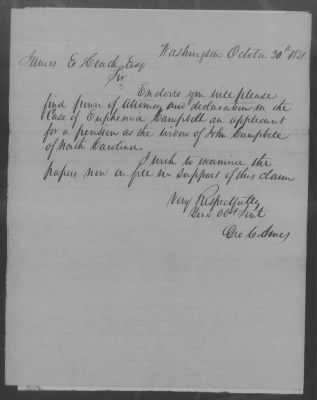 Washington October 20th 1851
James E Heath Esq
Sir
Enclosed you will please
find power of Attorney and declaration in the
Case of Euphemia Campbell an applicant
for a pension as the widow of John Campbell
of North Carolina.
I wish to examine the
papers now on file in support of this claim
Very Respectfully
Your Obt Servt
Geo C. Ames